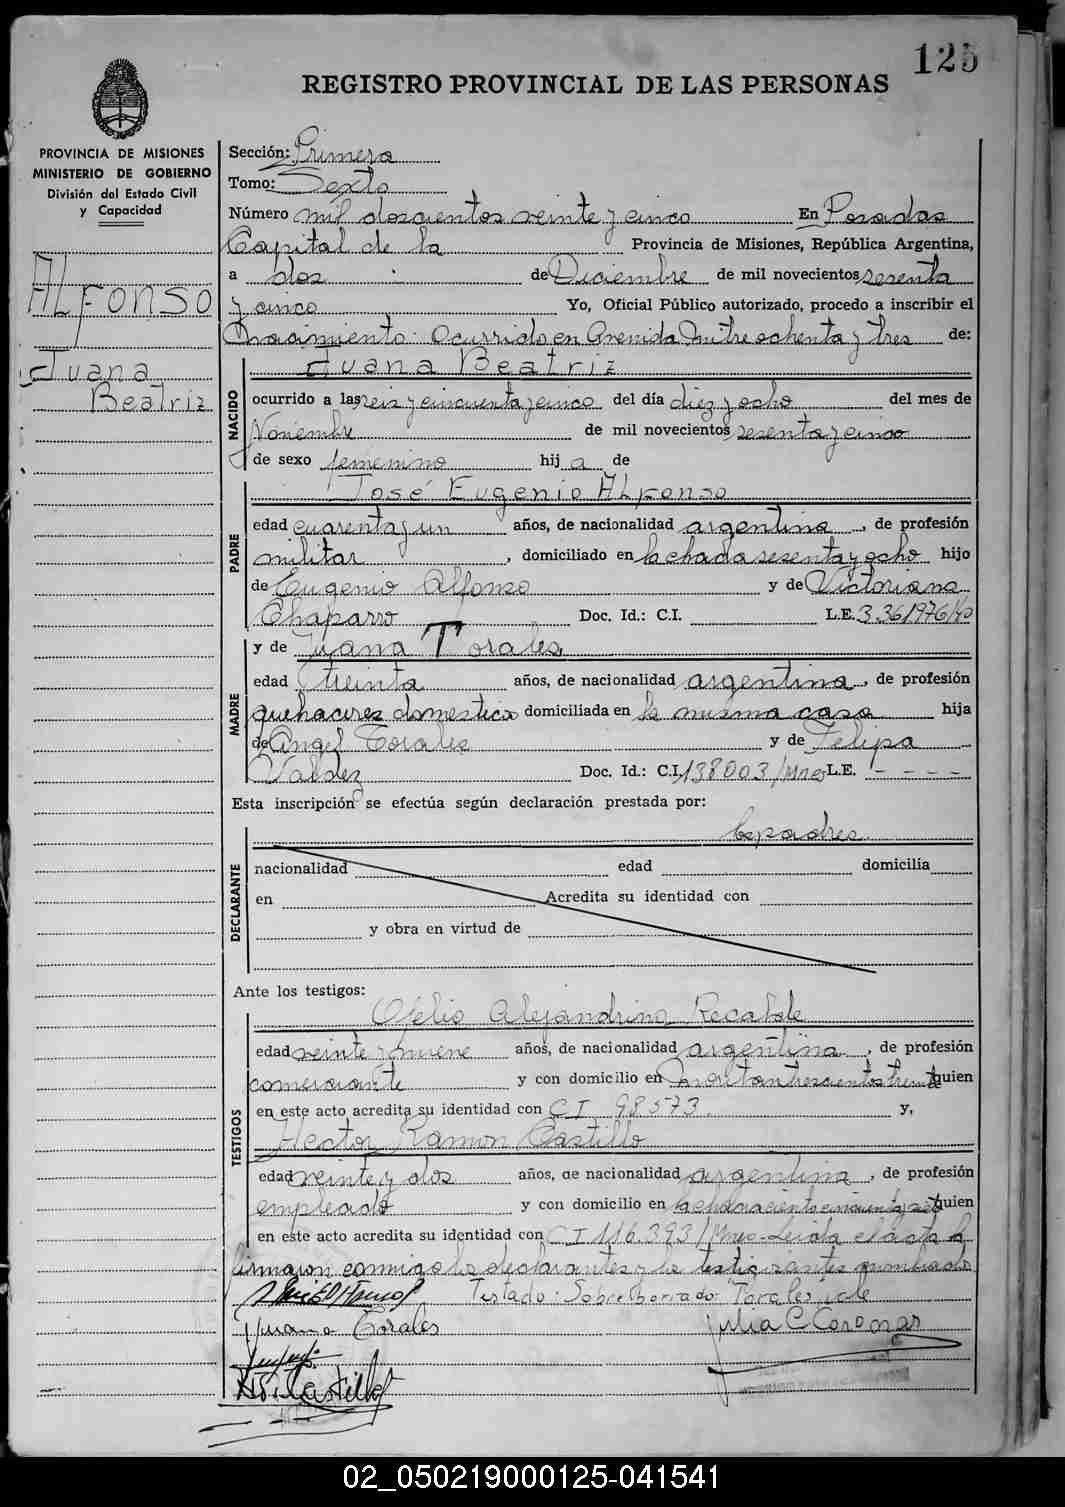 125
REGISTRO PROVINCIAL DE LAS PERSONAS
PROVINCIA DE MISIONES
MINISTERIO DE GOBIERNO
División del Estado Civil
y Capacidad
ALFONSO
Juana
Beatriz
Sección: Primera
Tomo: Sexto
Número mil doscientos veinte y cinco En Posadas
Capital de la Provincia de Misiones, República Argentina,
a dos de Diciembre de mil novecientos sesenta
y cinco Yo, Oficial Público autorizado, procedo a inscribir el
Nacimiento: Ocurrido en Avenida Mitre ochenta y tres de:
Juana Beatriz
NACIDO
ocurrido a las seis y cincuenta y cinco del día diez y ocho del mes de
Noviembre de mil novecientos sesenta y cinco
de sexo femenino hij a de
José Eugenio Alfonso
PADRE
edad cuarenta y un años, de nacionalidad argentina, de profesión
militar, domiciliado en la chacra sesenta y ocho hijo
de Eugenio Alfonso y de Victoriana
Chaparro Doc. Id.: C.I. L.E. 3.361.976
y de Juana Torales
MADRE
edad treinta años, de nacionalidad argentina, de profesión
quehaceres domesticos domiciliada en la misma casa hija
de Angel Torales y de Felipa
Valdez Doc. Id.: C.I. 138003/Mnes L.E. - - - -
Esta inscripción se efectúa según declaración prestada por:
los padres
DECLARANTE
nacionalidad edad domicilia
en Acredita su identidad con
y obra en virtud de
Ante los testigos:
Ofelio Alejandrino
TESTIGOS
edad veinte y nueve años, de nacionalidad argentina, de profesión
comerciante y con domicilio en trescientos treinta quien
en este acto acredita su identidad con C I 98573. y,
Hector Ramon Castillo
edad veinte y dos años, de nacionalidad argentina, de profesión
empleado y con domicilio en la chacra ciento cincuenta y quien
en este acto acredita su identidad con C I 116.393/Mnes-Leida el acta la
firmaron conmigo los declarantes y los testigos antes nombrados
Testado: Sobre borrado: Torales vale
Juana Torales
Julia C Coronar
H R Castillo
02_050219000125-041541